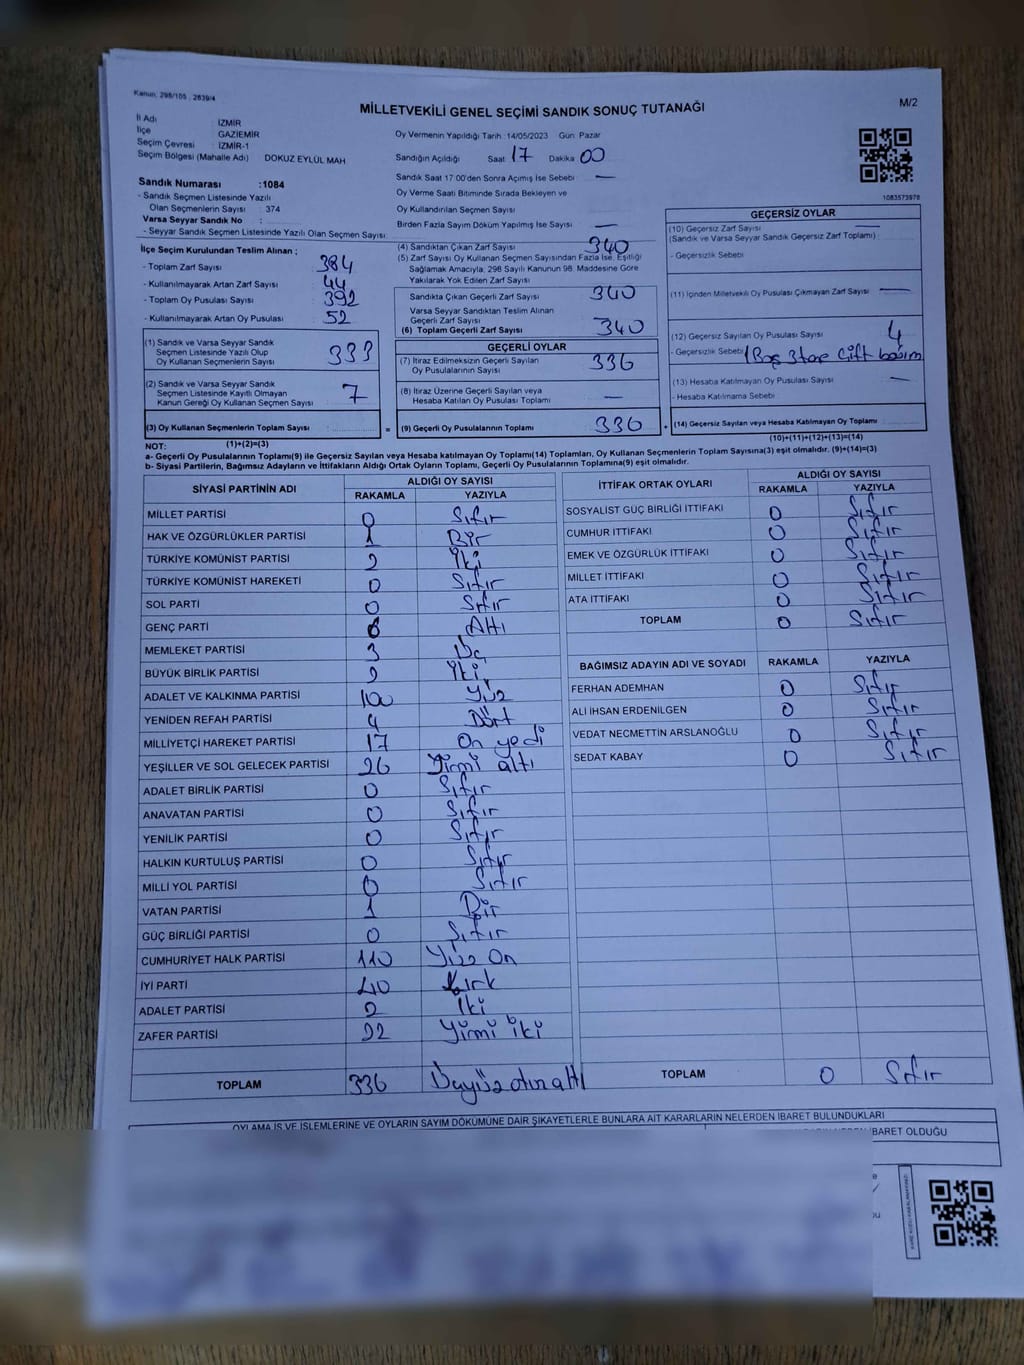 Kanun: 298/105 , 2839/4
MİLLETVEKİLİ GENEL SEÇİMİ SANDIK SONUÇ TUTANAĞI
M/2
İl Adı : İZMİR
İlçe : GAZİEMİR
Seçim Çevresi : İZMİR-1
Seçim Bölgesi (Mahalle Adı) DOKUZ EYLÜL MAH
Sandık Numarası :1084
- Sandık Seçmen Listesinde Yazılı
Olan Seçmenlerin Sayısı : 374
Varsa Seyyar Sandık No :
- Seyyar Sandık Seçmen Listesinde Yazılı Olan Seçmen Sayısı:
Oy Vermenin Yapıldığı Tarih :14/05/2023 Gün Pazar
Sandığın Açıldığı Saat 17 Dakika 00
Sandık Saat 17:00'den Sonra Açılmış İse Sebebi —
Oy Verme Saati Bitiminde Sırada Bekleyen ve
Oy Kullandırılan Seçmen Sayısı
Birden Fazla Sayım Döküm Yapılmış İse Sayısı —
1083573978
İlçe Seçim Kurulundan Teslim Alınan ;
- Toplam Zarf Sayısı 384
- Kullanılmayarak Artan Zarf Sayısı 44
- Toplam Oy Pusulası Sayısı 392
- Kullanılmayarak Artan Oy Pusulası 52
(1) Sandık ve Varsa Seyyar Sandık
Seçmen Listesinde Yazılı Olup
Oy Kullanan Seçmenlerin Sayısı 333
(2) Sandık ve Varsa Seyyar Sandık
Seçmen Listesinde Kayıtlı Olmayan
Kanun Gereği Oy Kullanan Seçmen Sayısı 7
(3) Oy Kullanan Seçmenlerin Toplam Sayısı =
(4) Sandıktan Çıkan Zarf Sayısı 340
(5) Zarf Sayısı Oy Kullanan Seçmen Sayısından Fazla İse, Eşitliği
Sağlamak Amacıyla; 298 Sayılı Kanunun 98. Maddesine Göre
Yakılarak Yok Edilen Zarf Sayısı
Sandıkta Çıkan Geçerli Zarf Sayısı 340
Varsa Seyyar Sandıktan Teslim Alınan
Geçerli Zarf Sayısı
(6) Toplam Geçerli Zarf Sayısı 340
GEÇERLİ OYLAR
(7) İtiraz Edilmeksizin Geçerli Sayılan
Oy Pusulalarının Sayısı 336
(8) İtiraz Üzerine Geçerli Sayılan veya
Hesaba Katılan Oy Pusulası Toplamı —
(9) Geçerli Oy Pusulalarının Toplamı 336 +
GEÇERSİZ OYLAR
(10) Geçersiz Zarf Sayısı —
(Sandık ve Varsa Seyyar Sandık Geçersiz Zarf Toplamı) :
- Geçersizlik Sebebi
(11) İçinden Milletvekili Oy Pusulası Çıkmayan Zarf Sayısı —
(12) Geçersiz Sayılan Oy Pusulası Sayısı 4
- Geçersizlik Sebebi 1 Boş 3 tane Çift basım
(13) Hesaba Katılmayan Oy Pusulası Sayısı —
- Hesaba Katılmama Sebebi
(14) Geçersiz Sayılan veya Hesaba Katılmayan Oy Toplamı
NOT: (1)+(2)=(3)
(10)+(11)+(12)+(13)=(14)
a- Geçerli Oy Pusulalarının Toplamı(9) ile Geçersiz Sayılan veya Hesaba katılmayan Oy Toplamı(14) Toplamları, Oy Kullanan Seçmenlerin Toplam Sayısına(3) eşit olmalıdır. (9)+(14)=(3)
b- Siyasi Partilerin, Bağımsız Adayların ve İttifakların Aldığı Ortak Oyların Toplamı, Geçerli Oy Pusulalarının Toplamına(9) eşit olmalıdır.
SİYASİ PARTİNİN ADI ALDIĞI OY SAYISI
RAKAMLA YAZIYLA
MİLLET PARTİSİ 0 Sıfır
HAK VE ÖZGÜRLÜKLER PARTİSİ 1 Bir
TÜRKİYE KOMÜNİST PARTİSİ 2 İki
TÜRKİYE KOMÜNİST HAREKETİ 0 Sıfır
SOL PARTİ 0 Sıfır
GENÇ PARTİ 6 Altı
MEMLEKET PARTİSİ 3 Üç
BÜYÜK BİRLİK PARTİSİ 2 İki
ADALET VE KALKINMA PARTİSİ 100 Yüz
YENİDEN REFAH PARTİSİ 4 Dört
MİLLİYETÇİ HAREKET PARTİSİ 17 On yedi
YEŞİLLER VE SOL GELECEK PARTİSİ 26 Yirmi altı
ADALET BİRLİK PARTİSİ 0 Sıfır
ANAVATAN PARTİSİ 0 Sıfır
YENİLİK PARTİSİ 0 Sıfır
HALKIN KURTULUŞ PARTİSİ 0 Sıfır
MİLLİ YOL PARTİSİ 0 Sıfır
VATAN PARTİSİ 1 Bir
GÜÇ BİRLİĞİ PARTİSİ 0 Sıfır
CUMHURİYET HALK PARTİSİ 110 Yüz On
İYİ PARTİ 40 Kırk
ADALET PARTİSİ 2 İki
ZAFER PARTİSİ 22 Yirmi iki
TOPLAM 336 Üçyüz otuz altı
İTTİFAK ORTAK OYLARI ALDIĞI OY SAYISI
RAKAMLA YAZIYLA
SOSYALİST GÜÇ BİRLİĞİ İTTİFAKI 0 Sıfır
CUMHUR İTTİFAKI 0 Sıfır
EMEK VE ÖZGÜRLÜK İTTİFAKI 0 Sıfır
MİLLET İTTİFAKI 0 Sıfır
ATA İTTİFAKI 0 Sıfır
TOPLAM 0 Sıfır
BAĞIMSIZ ADAYIN ADI VE SOYADI RAKAMLA YAZIYLA
FERHAN ADEMHAN 0 Sıfır
ALİ İHSAN ERDENİLGEN 0 Sıfır
VEDAT NECMETTİN ARSLANOĞLU 0 Sıfır
SEDAT KABAY 0 Sıfır
TOPLAM 0 Sıfır
OYLAMA İŞ VE İŞLEMLERİNE VE OYLARIN SAYIM DÖKÜMÜNE DAİR ŞİKAYETLERLE BUNLARA AİT KARARLARIN NELERDEN İBARET BULUNDUKLARI
İBARET OLDUĞU